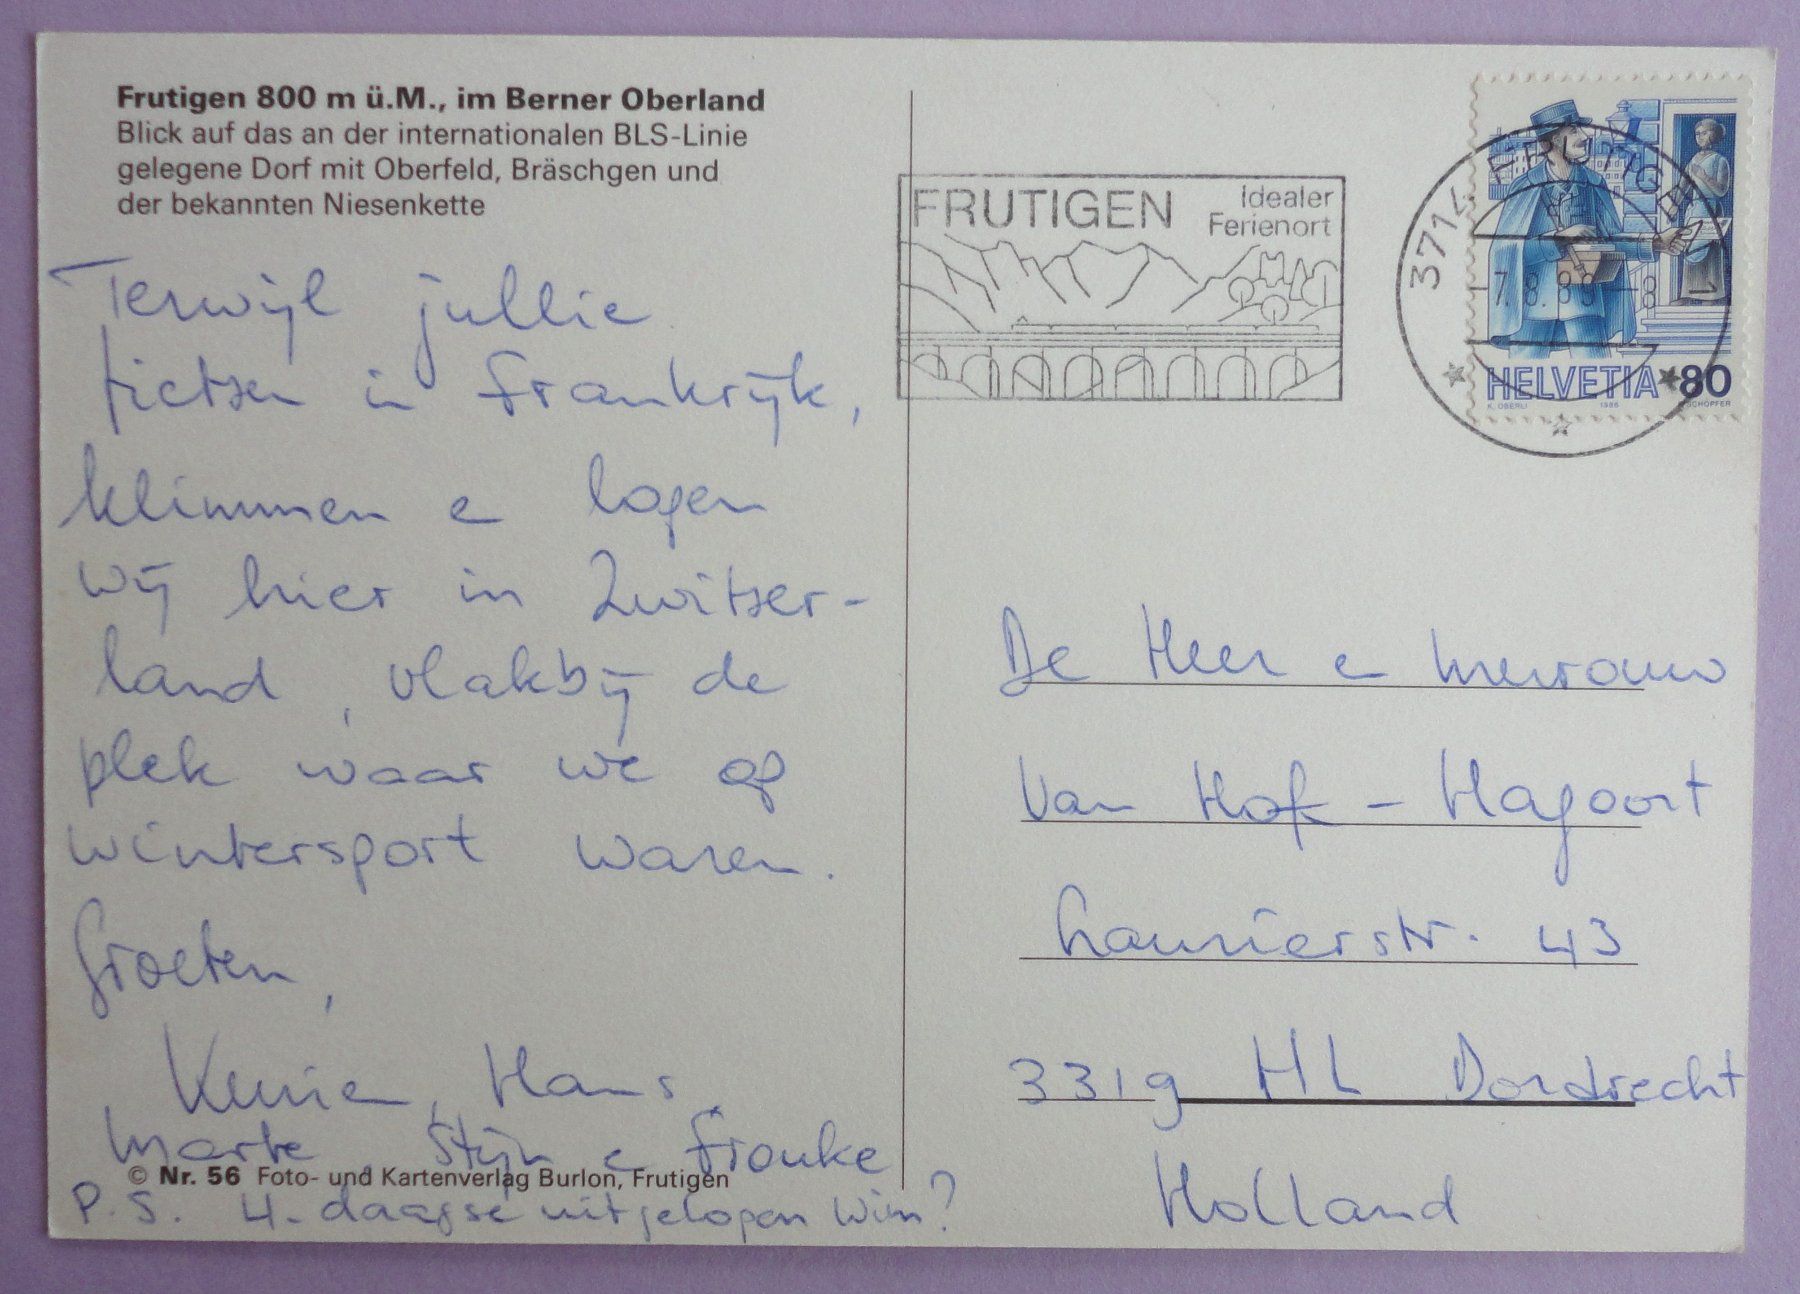 Frutigen 800 m ü.M., im Berner Oberland
Blick auf das an der internationalen BLS-Linie
gelegene Dorf mit Oberfeld, Bräschgen und
der bekannten Niesenkette
Terwijl jullie
fietsen in Frankrijk,
klimmen e lopen
wij hier in Zwitser-
land, vlakbij de
plek waar we op
wintersport waren.
Groeten,
Hans
Marte, Stijn e Frouke
© Nr. 56 Foto- und Kartenverlag Burlon, Frutigen
P.S. 4-daagse uitgelopen Wim?
FRUTIGEN
Idealer
Ferienort
3714 FRUTIGEN
HELVETIA 80
K. OBERLI 1986 SCHÖPFER
De Heer e Mevrouw
Van Hof - Hagoort
43
3319 HL Dordrecht
Holland